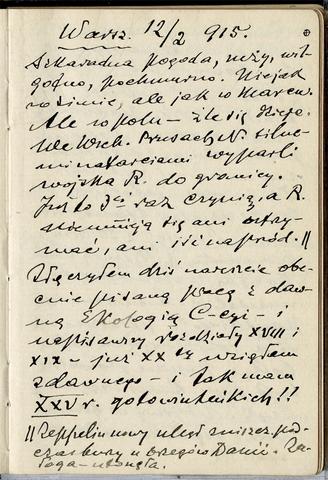 Warsz. 12/2 915.
Szkaradna pogoda, mży, wil-
gotno, pochmurno. Niejak
w zimie, ale jak w Marcu.
Ale w polu – źle się dzieje.
We Wsch. Prusach N. silne-
mi natarciami wyparli
wojska R. do granicy.
Już to 3ci raz czynią, a R.
nie umieją się ani utrzy-
mać, ani iść naprzód. ||
Złączyłem dziś nareszcie obe-
cnie pisaną pracę z daw-
ną Ekologią C-cyi – i
napisawszy rozdziały XVIII i
XIX – już XX ty wziąłem
z dawnego – i tak mam
XXV r. gotowiuteńkich!!
|| Zeppelin nowy uległ zniszcz. pod-
czas burzy u brzegów Danii. Za-
łoga – utonęła.